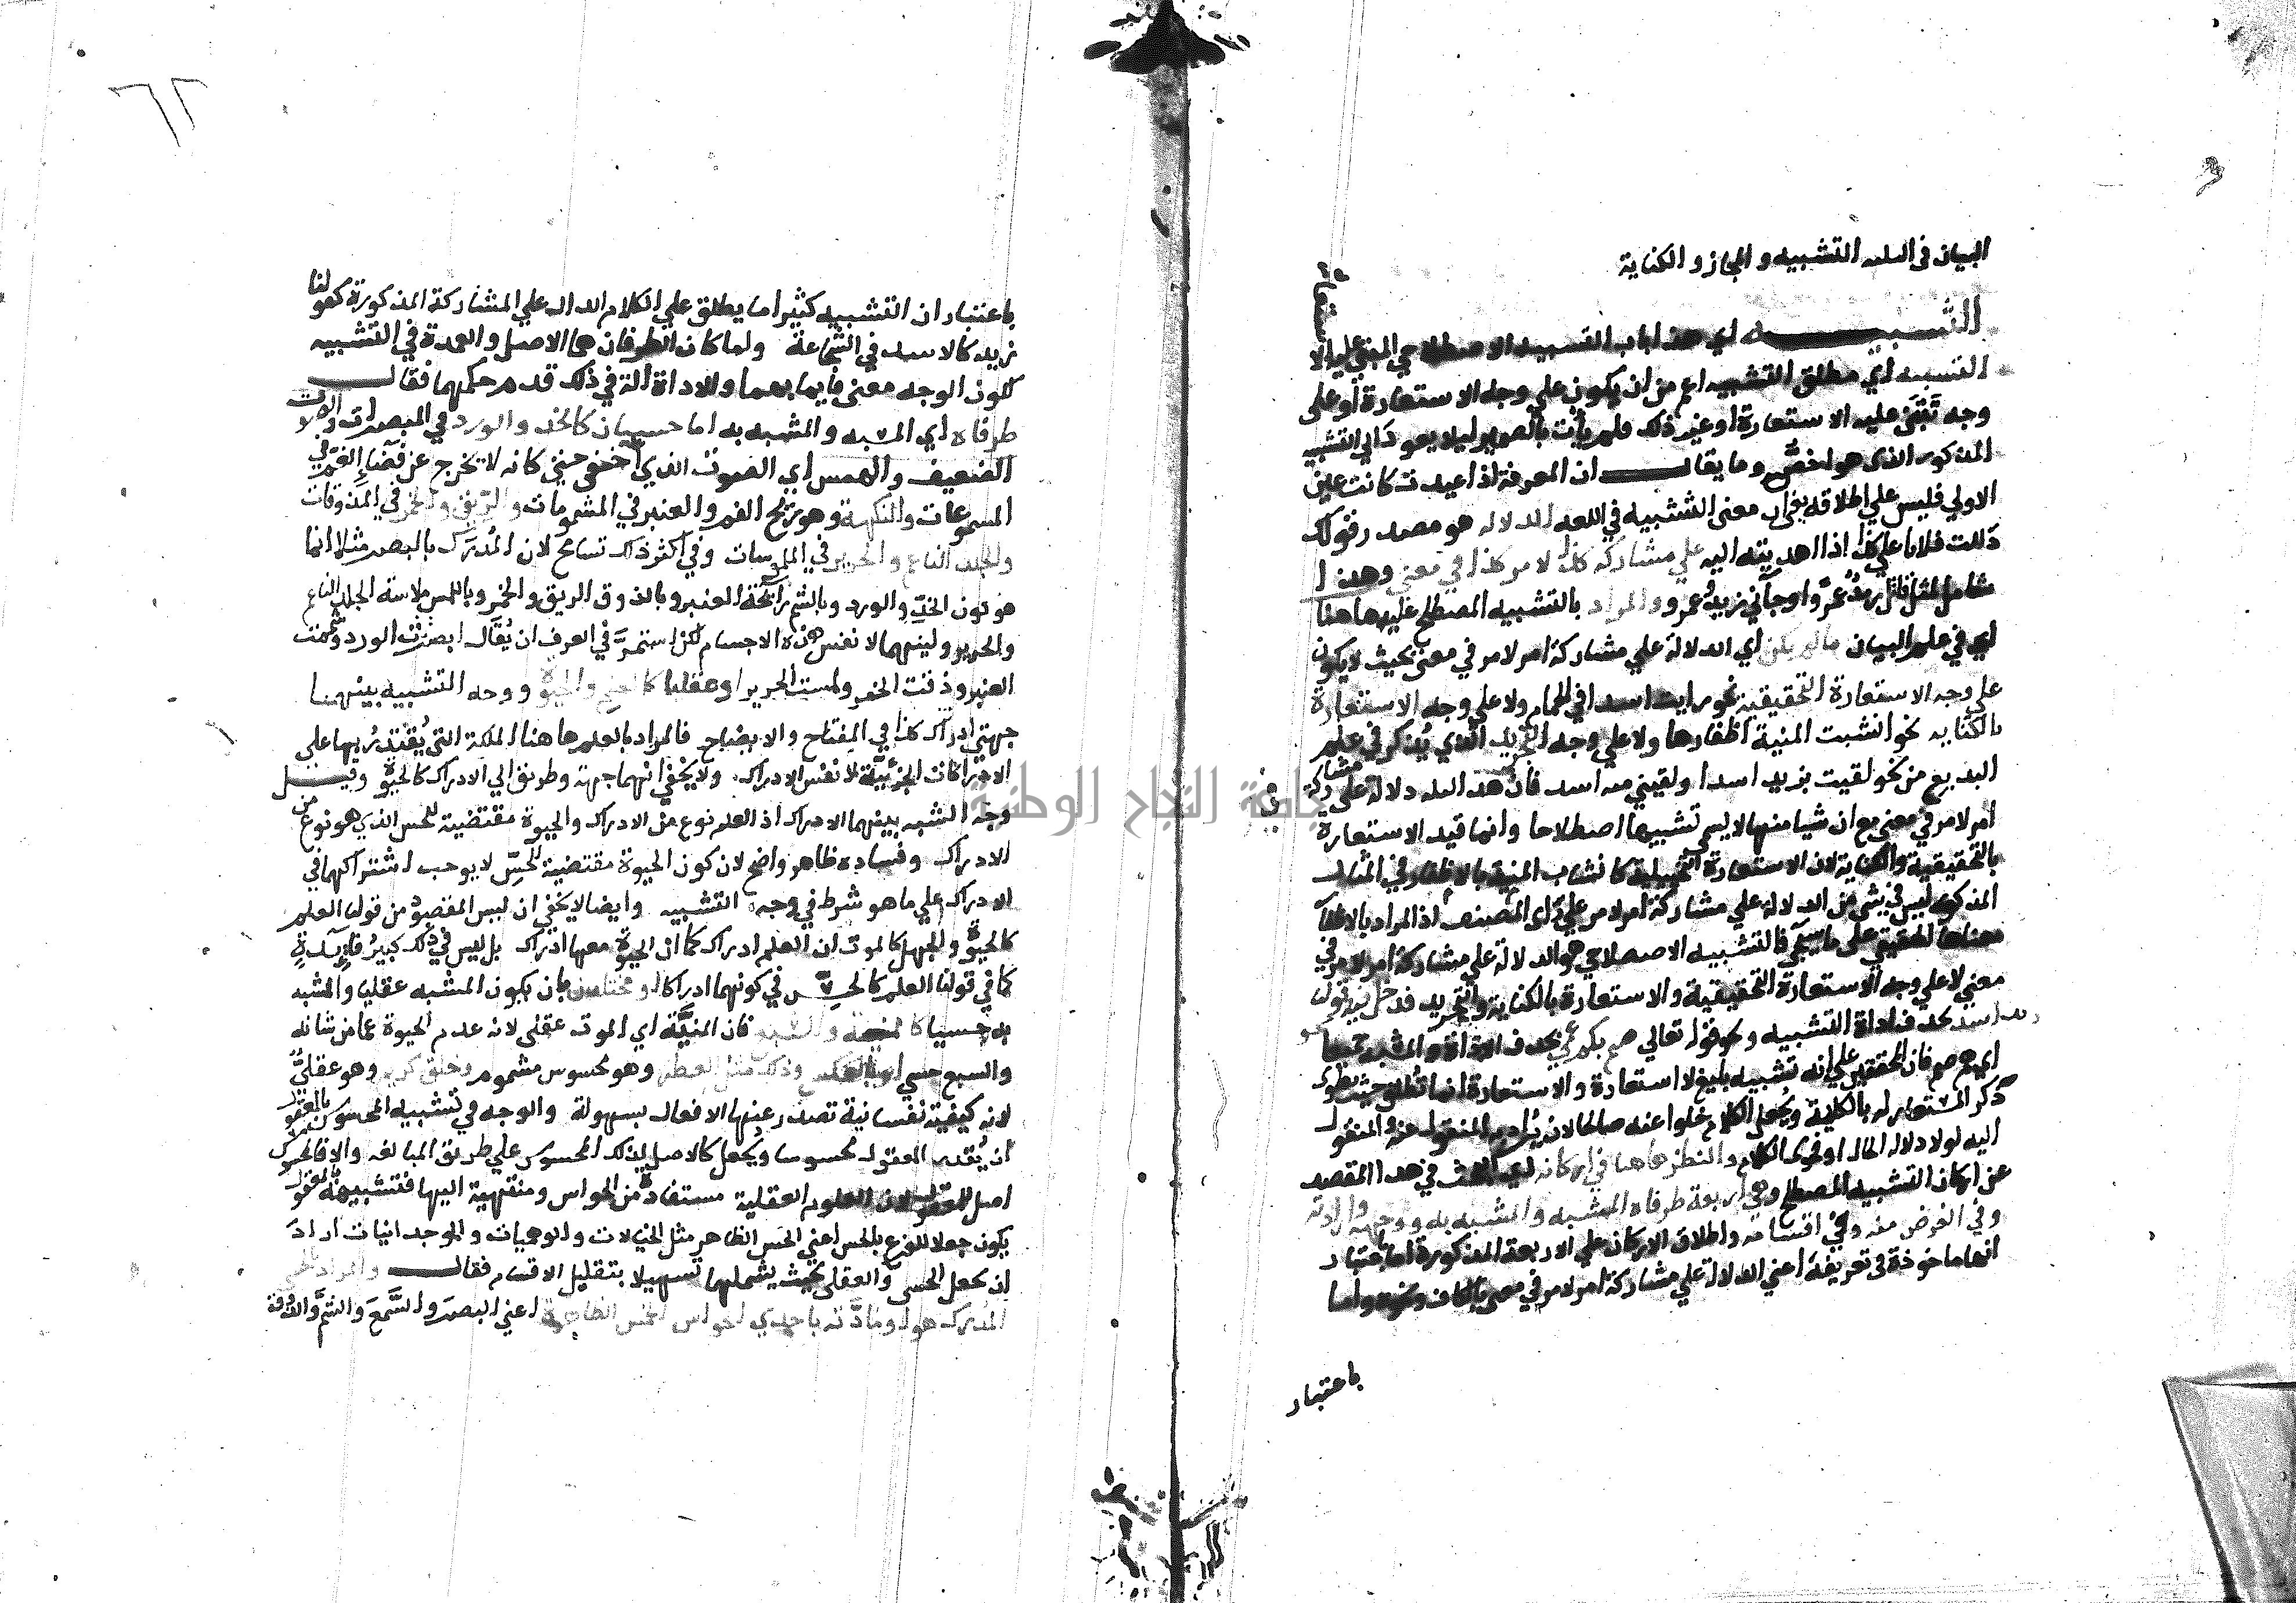 البيان في الثلثه التشبيه و المجاز و الكناية
التشبيه اي هذا باب التشبيه الاصطلاحي المبني عليه الا
ستعاره
التشبيه اي مطلق التشبيه اعم من ان يكون علي وجه الاستعارة او على
وجه تبتني عليه الاستعارة او غير ذلك فلم يأت بالضمير ليلا يعود الي التشبيه
المذكور الذى هو اخص وما يقال ان المعرفة اذا اعيدت كانت عين
الاولي فليس علي اطلاقه يعني ان معنى التشبيه في اللغه الدلاله هو مصدر قولك
دللت فلانا علي كذا اذا هديته اليه علي مشاركة امر لامر في معني وهذا
شامل لمثل قاتل زيد عمروا وجآني زيد وعمرو والمراد بالتشبيه المصطلح عليه هاهنا
اي في علم البيان مالم يكن اي الدلالة علي مشاركة امر لامر في معنى بحيث لا يكون
علي وجه الاستعارة التحقيقية نحو رايت اسدا في الحمام ولا علي وجه الاستعارة
بالكنايه نحو انشبت المنية اظفارها ولا علي وجه التجريد الذي يذكر في علم
البديع من نحو لقيت بزيد اسدا ولقيني منه اسد فان هذه الثلثه دلالة على مشاركة
امر لامر في معني مع ان شيا منها لا يسمي تشبيها اصطلاحا وانما قيد الاستعارة
بالتحقيقية والكناية لان الاستعارة التخييلية كانشاب المنية بالاظفار في المثال
المذكور ليس في شي من الدلالة علي مشاركة امر لامر علي راي المصنف اذ المراد بالاظفار
معناها الحقيقي على ما سيجي فالتشبيه الاصطلاحي هو الدلالة علي مشاركة امر لامر في
معني لا علي وجه الاستعارة التحقيقية والاستعارة بالكناية والتجريد فدخل فيه نحو قولنا
زيد اسد بحذف اداة التشبيه ونحو قوله تعالي صم بكم عمي بحذف الاداة والمشبه جميعا
اي هم صم فان المحققين علي انه تشبيه بليغ لا استعارة والاستعارة انما تطلق حيث يطوى
ذكر المستعار له بالكلية ويجعل الكلام خلوا عنه صالحا لان يراد به المنقول عنه والمنقول
اليه لولا دلالة الحال او فحوى الكلام والنظر هاهنا في اركانه اي البحث في هذا المقصد
عن اركان التشبيه المصطلح وهي اربعة طرفاه المشبه والمشبه به ووجهه واداته
وفي الغرض منه وفي اقسامه واطلاق الاركان علي الاربعة المذكورة اما باعتبار
انها ماخوذة في تعريفه اعني الدلالة علي مشاركة امر لامر في معنى بالكاف ونحوه واما
باعتبار
٦٢
باعتبار ان التشبيه كثيرا ما يطلق علي الكلام الدال علي المشاركة المذكورة كقولنا
زيد كالاسد في الشجاعة ولما كان الطرفان هما الاصل والعمدة في التشبيه
لكون الوجه معنى قايما بهما والاداة الة في ذلك قدم حكمهما فقال
طرفاه اي المشبه والمشبه به اما حسيان كالخد والورد في المبصرات والصوت
الضعيف والهمس اي الصوت الذي اخفي حتي كانه لا يخرج عن فضاء الفم في
المسموعات والنكهة وهو ريح الفم والعنبر في المشمومات والريق والخمر في المذوقات
والجلد الناعم والحرير في الملموسات وفي اكثر ذلك تسامح لان المدرك بالبصر مثلا انما
هو لون الخد والورد وبالشم رآئحة العنبر وبالذوق الريق والخمر وباللمس ملاسة الجلد الناعم
والحرير ولينهما لا نفس هذه الاجسام لكن استمر في العرف ان يقال ابصرت الورد وشممت
العنبر وذقت الخمر ولمست الحرير او عقليا كالعلم والحيوة ووجه التشبيه بينهما
جهتي ادراك كذا في المفتاح والايضاح فالمراد بالعلم هاهنا الملكة التي يقتدر بها على
الادراكات الجزئية لا نفس الادراك ولا يخفي انهما جهة وطريق الي الادراك كالحيوة وقيل
وجه الشبه بينهما الادراك اذ العلم نوع من الادراك والحيوة مقتضية للحس الذي هو نوع من
الادراك وفساده ظاهر واضح لان كون الحيوة مقتضية للحس لا يوجب اشتراكهما في
الادراك علي ما هو شرط في وجه التشبيه وايضا لا يخفي ان ليس المقصود من قولنا العلم
كالحيوة والجهل كالموت ان العلم ادراك كما ان الحيوة معها ادراك بل ليس في ذلك كبير فايدة
كما في قولنا العلم كالحس في كونهما ادراكا او مختلفان بان يكون المشبه عقليا والمشبه
به حسيا كالمنية والسبع فان المنية اي الموت عقلي لانه عدم الحيوة عما من شانه
والسبع حسي او بالعكس وذلك مثل العطر وهو محسوس مشموم وخلق كريم وهو عقلي
لانه كيفية نفسانية تصدر عنها الافعال بسهولة والوجه في تشبيه المحسوس بالمعقول
ان يقدر المعقول محسوسا ويجعل كالاصل لذلك المحسوس علي طريق المبالغه والا فالمحسوس
اصل للمعقول لان العلوم العقلية مستفادة من الحواس ومنتهية اليها فتشبيهه بالمعقول
يكون جعلا للفرع بالحس اعني الحس الظاهر مثل الخيالات والوهميات والوجدانيات اراد
ان يجعل الحسي والعقلي بحيث يشملها تسهيلا بتقليل الاقسام فقال والمراد بالحسي
المدرك هو او مادته باحدي الحواس الخمس الظاهرة اعني البصر والسمع والشم والذوق
جامعة النجاح الوطنية